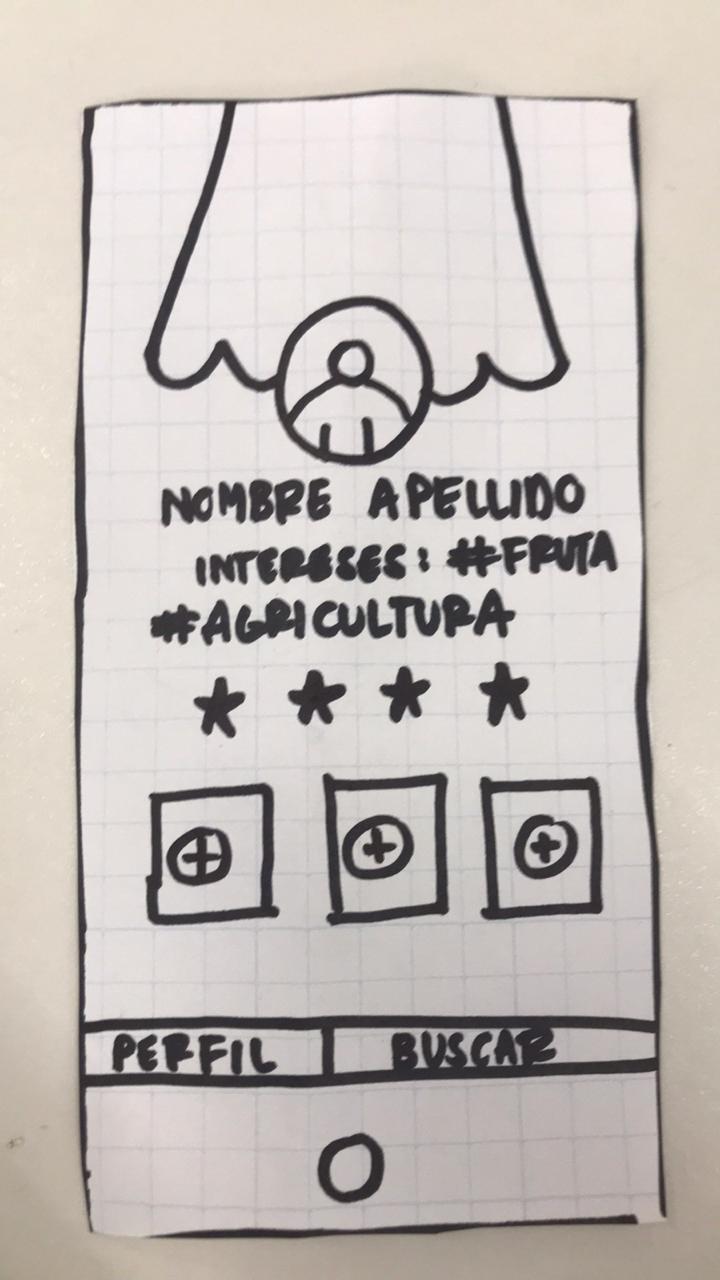 NOMBRE APELLIDO
INTERESES: #FRUTA
#AGRICULTURA
PERFIL BUSCAR